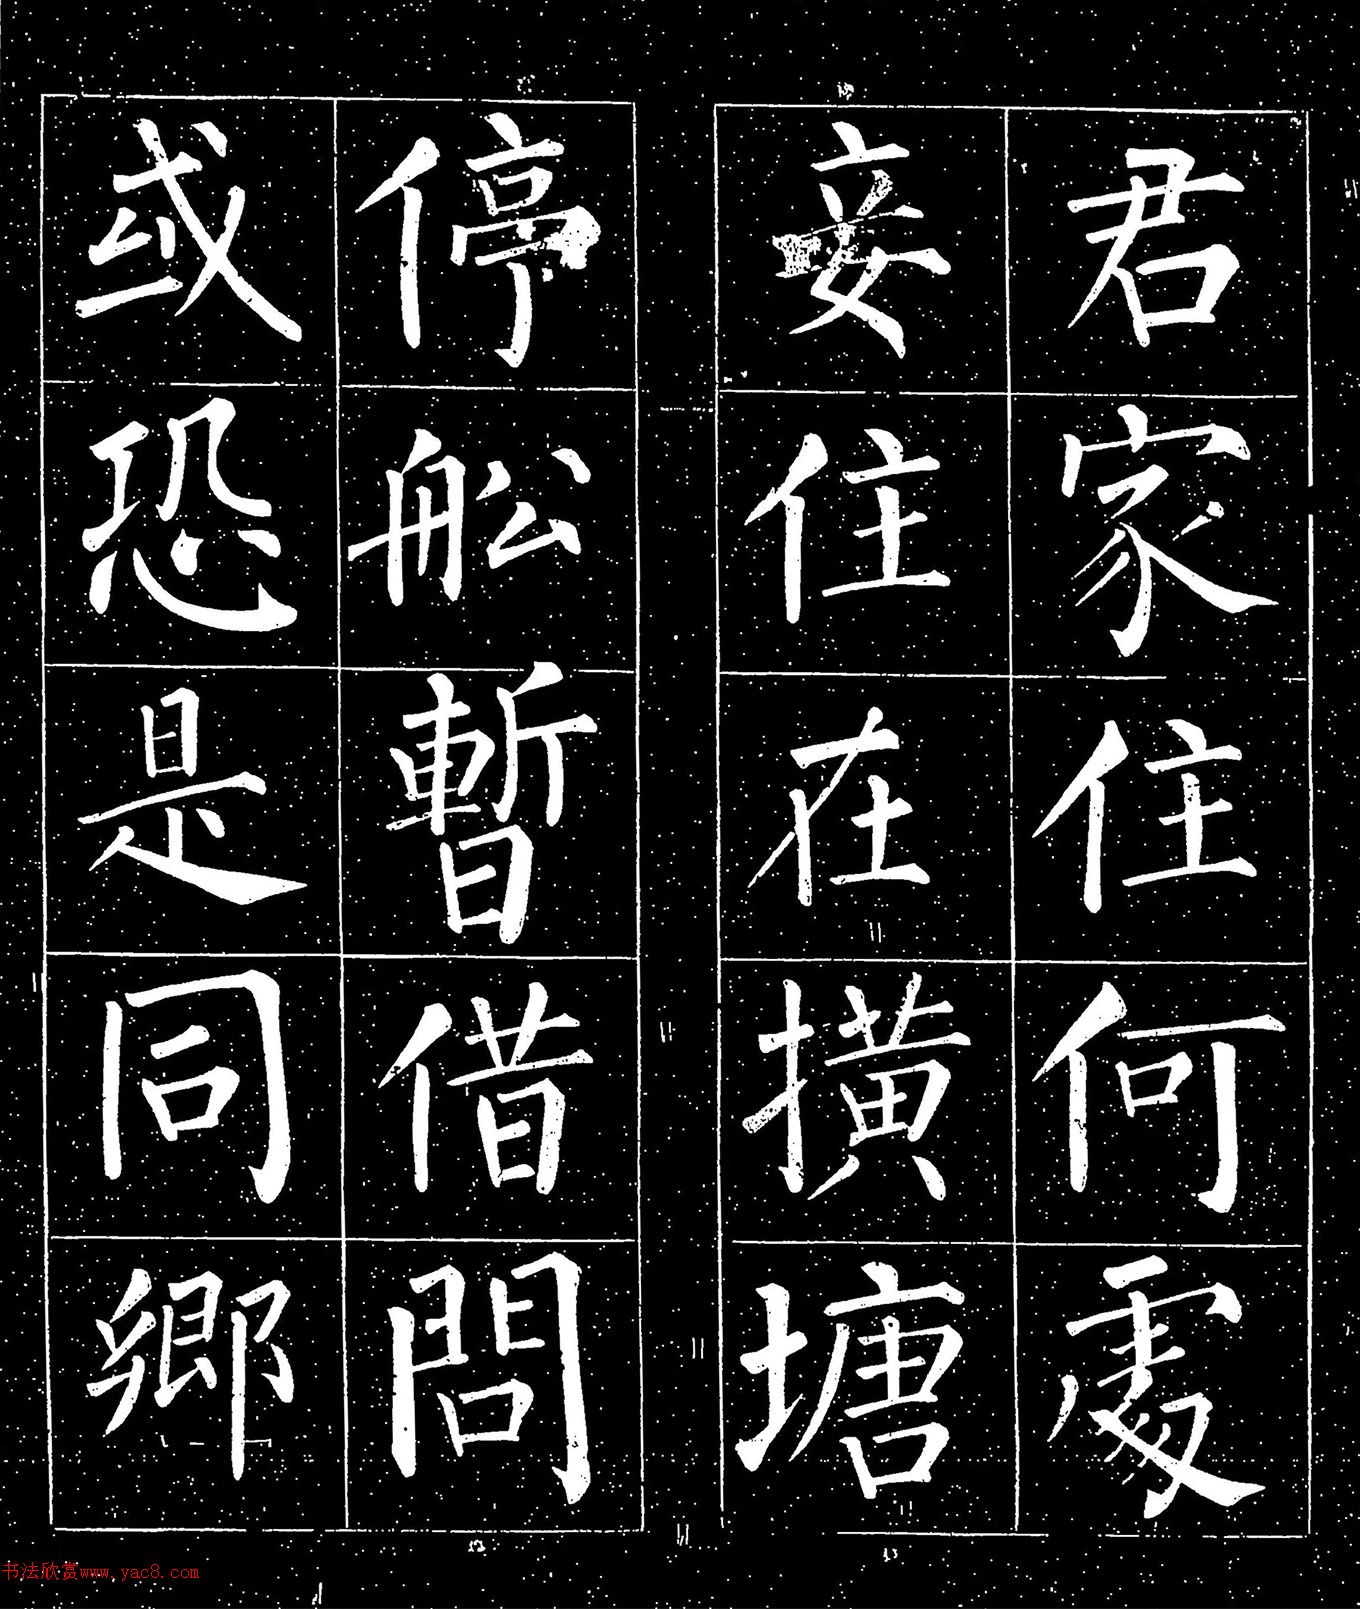 君家住何處
妾住在撗塘
停舩暫借問
或恐是同鄉
书法欣赏www.yac8.com